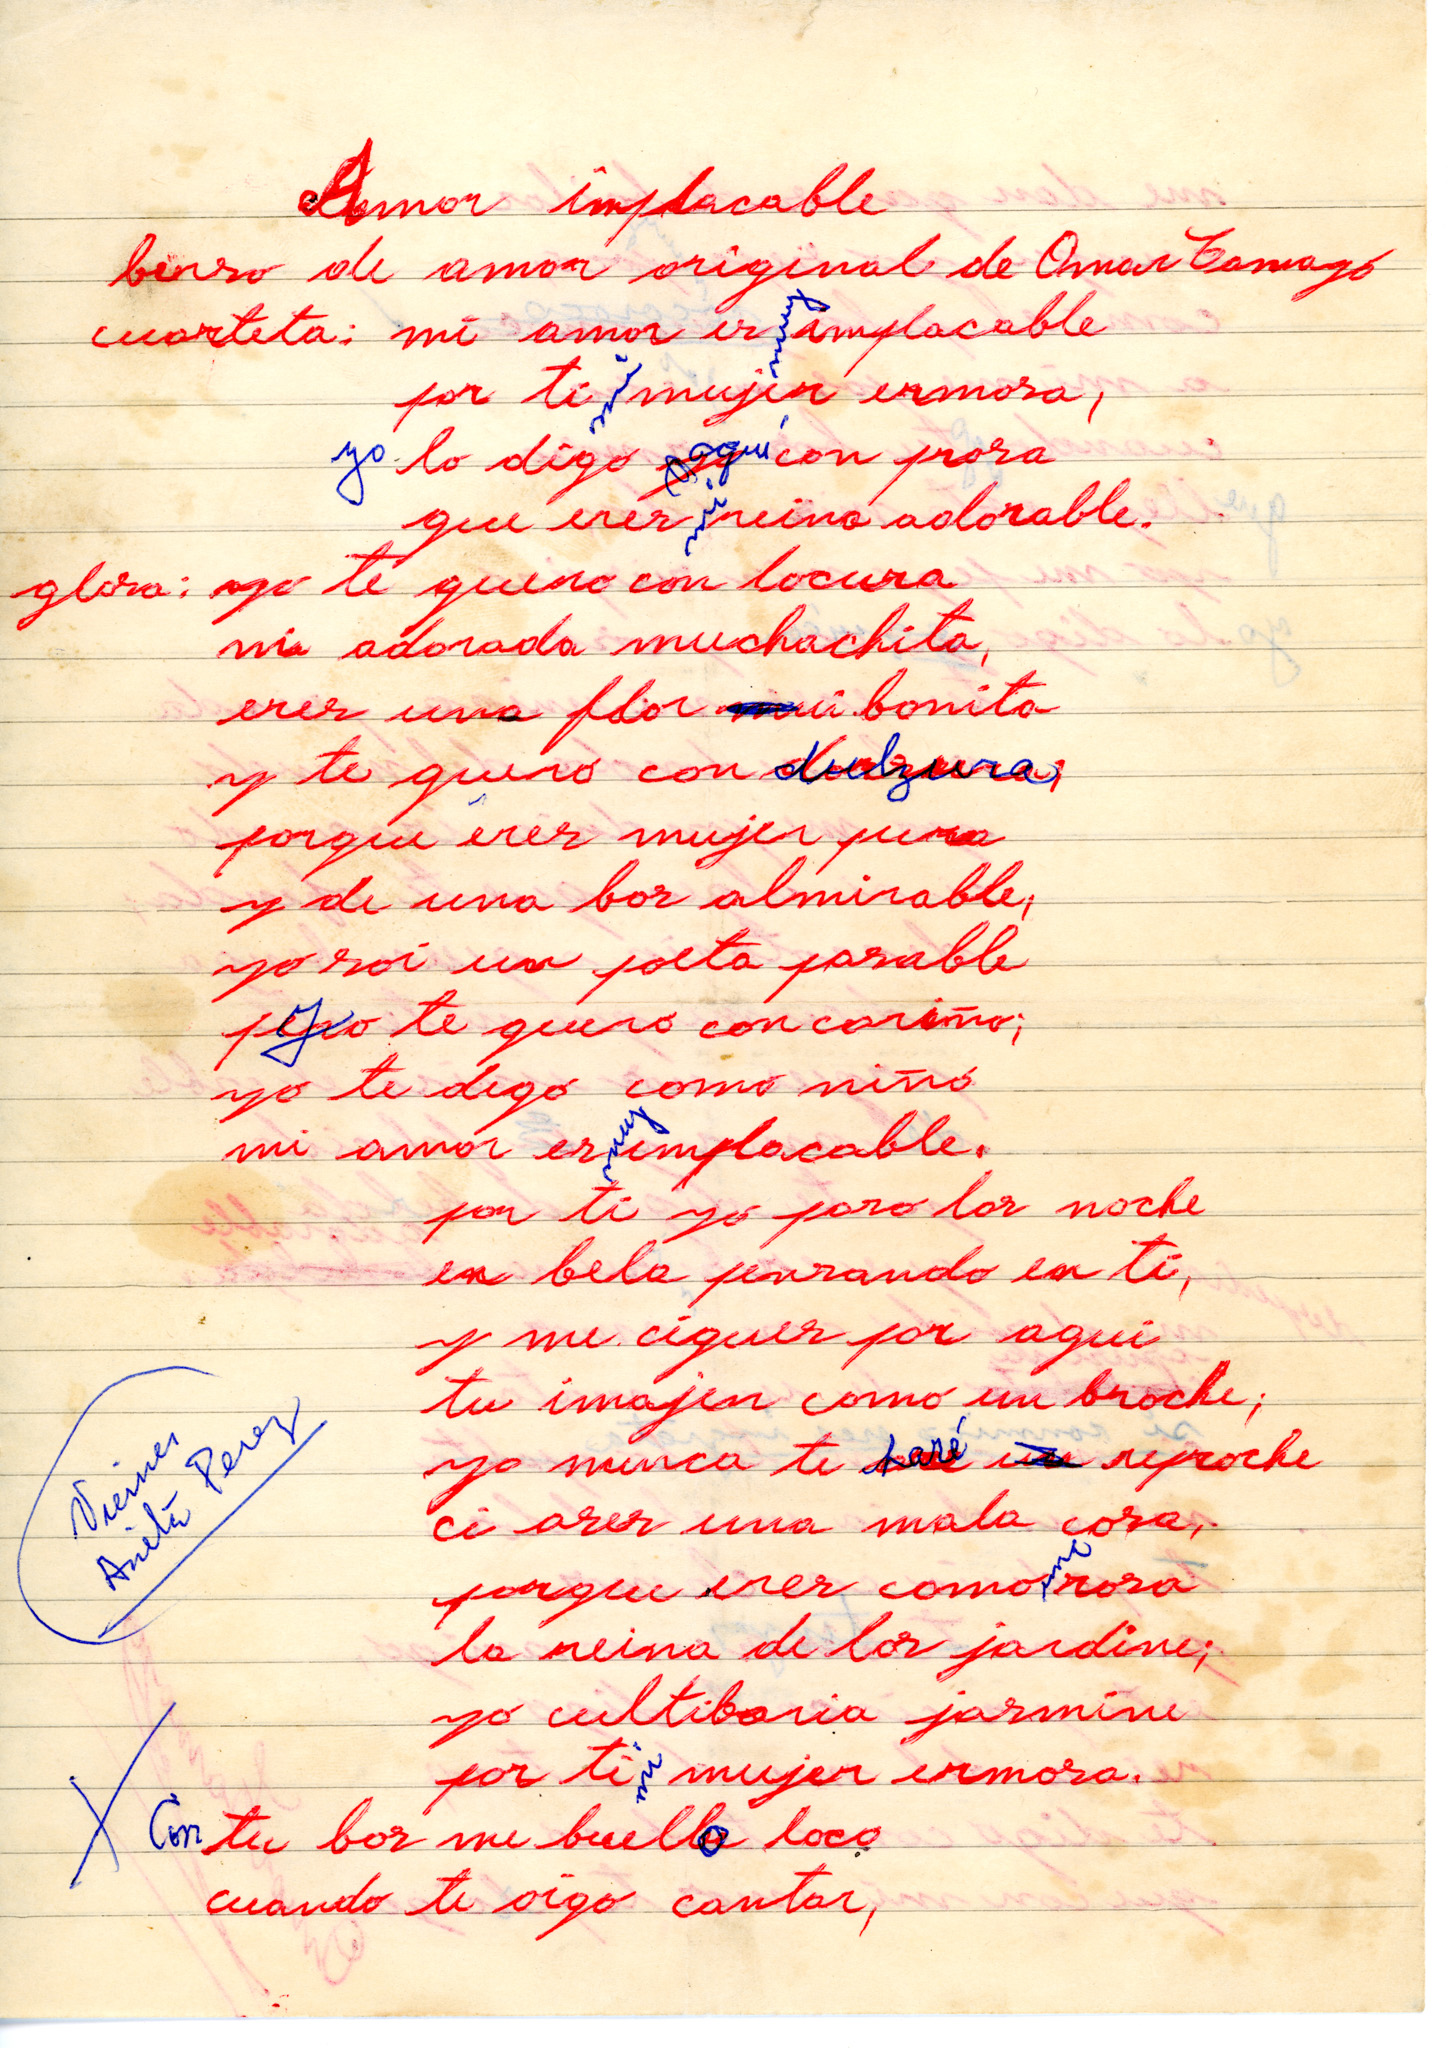 Amor implacable
berso de amor original de Omar Camago
cuarteta: mi amor es muy implacable
por ti mi mujer ermosa,
yo lo digo aquí con prosa
que eres mi reina adorable.
glosa: yo te quero con locura
mi adorada muchachita,
eres una flor mui bonita
y te quero con dulzura,
porque eres mujer pura
y de una bos almirable,
yo soi un poeta pasable
Yo te quero con cariño;
yo te digo como niño
mi amor es muy implacable.
por ti yo paso los noche
en bela pensando en ti,
y me cigues por aqui
tu imajen como un broche;
yo nunca te haré un reproche
ci ases una mala cosa,
porque eres como una rosa
la reina de los jardine;
yo cultibaria jasmine
por ti mi mujer ermosa.
Viernes
Anita Perez
X Con tu bos me buelbo loco
cuando te oigo cantar,